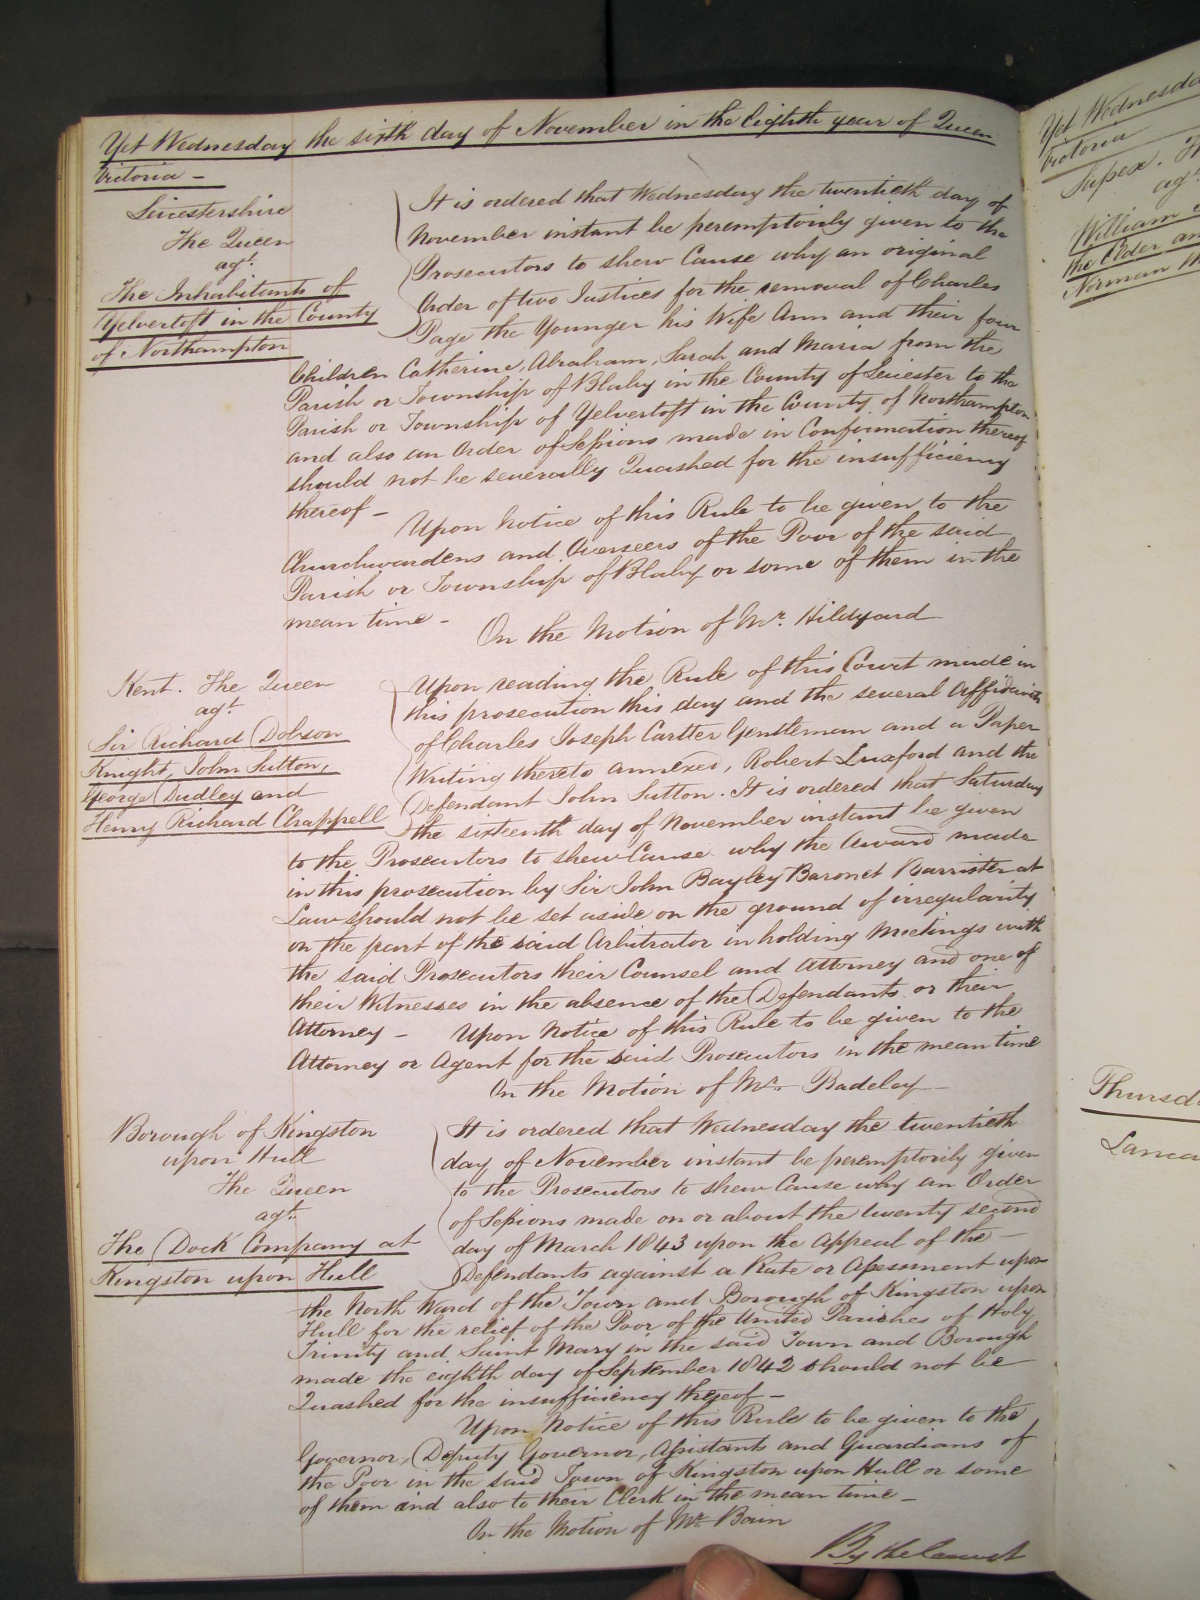 Yet Wednesday the sixth day of November in the Eighth year of Queen
Victoria —
Leicestershire
The Queen
agt.
The Inhabitants of
Yelvertoft in the County
of Northampton
It is ordered that Wednesday the twentieth day of
November instant be peremptorily given to the
Prosecutors to shew Cause why an original
Order of two Justices for the removal of Charles
Page the Younger his Wife Ann and their four
Children Catherine, Abraham, Sarah and Maria from the
Parish or Township of Blaby in the County of Leicester to the
Parish or Township of Yelvertoft in the County of Northampton
and also an Order of Sessions made in Confirmation thereof
should not be severally Quashed for the insufficiency
thereof —
Upon Notice of this Rule to be given to the
Churchwardens and Overseers of the Poor of the said
Parish or Township of Blaby or some of them in the
mean time —
On the Motion of Mr. Hildyard
Kent. The Queen
agt.
Sir Richard Dobson
Knight, John Sutton,
George Dudley and
Henry Richard Chappell
Upon reading the Rule of this Court made in
this prosecution this day and the several Affidavits
of Charles Joseph Cartter Gentleman and a Paper
Writing thereto annexed, Robert Luxford and the
Defendant John Sutton. It is ordered that Saturday
the sixteenth day of November instant be given
to the Prosecutors to shew Cause why the Award made
in this prosecution by Sir John Bayley Baronet Barrister at
Law should not be set aside on the ground of irregularity
on the part of the said Arbitrator in holding Meetings with
the said Prosecutors their Counsel and Attorney and one of
their Witnesses in the absence of the Defendants or their
Attorney — Upon Notice of this Rule to be given to the
Attorney or Agent for the said Prosecutors in the mean time
On the Motion of Mr. Badeley
Borough of Kingston
upon Hull
The Queen
agt.
The Dock Company at
Kingston upon Hull
It is ordered that Wednesday the twentieth
day of November instant be peremptorily given
to the Prosecutors to shew Cause why an Order
of Sessions made on or about the twenty second
day of March 1843 upon the Appeal of the —
Defendants against a Rate or Assessment upon
the North Ward of the Town and Borough of Kingston upon
Hull for the relief of the Poor of the United Parishes of Holy
Trinity and Saint Mary in the said Town and Borough
made the eighth day of September 1842 should not be
Quashed for the insufficiency thereof —
Upon Notice of this Rule to be given to the
Governor, Deputy Governor, Assistants and Guardians of
the Poor in the said Town of Kingston upon Hull or some
of them and also to their Clerk in the mean time —
On the Motion of Mr. Bain
By the Court
Yet Wednesda
Victoria
agt.
William
the Elder an
Norman
Thursd
Lanca